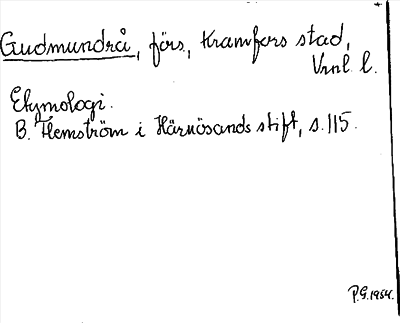 Gudmundrå, förs., Kramfors stad,
Vrnl. l.
Etymologi.
B. Hemström i Härnösands stift, s. 115.
P.G. 1954.